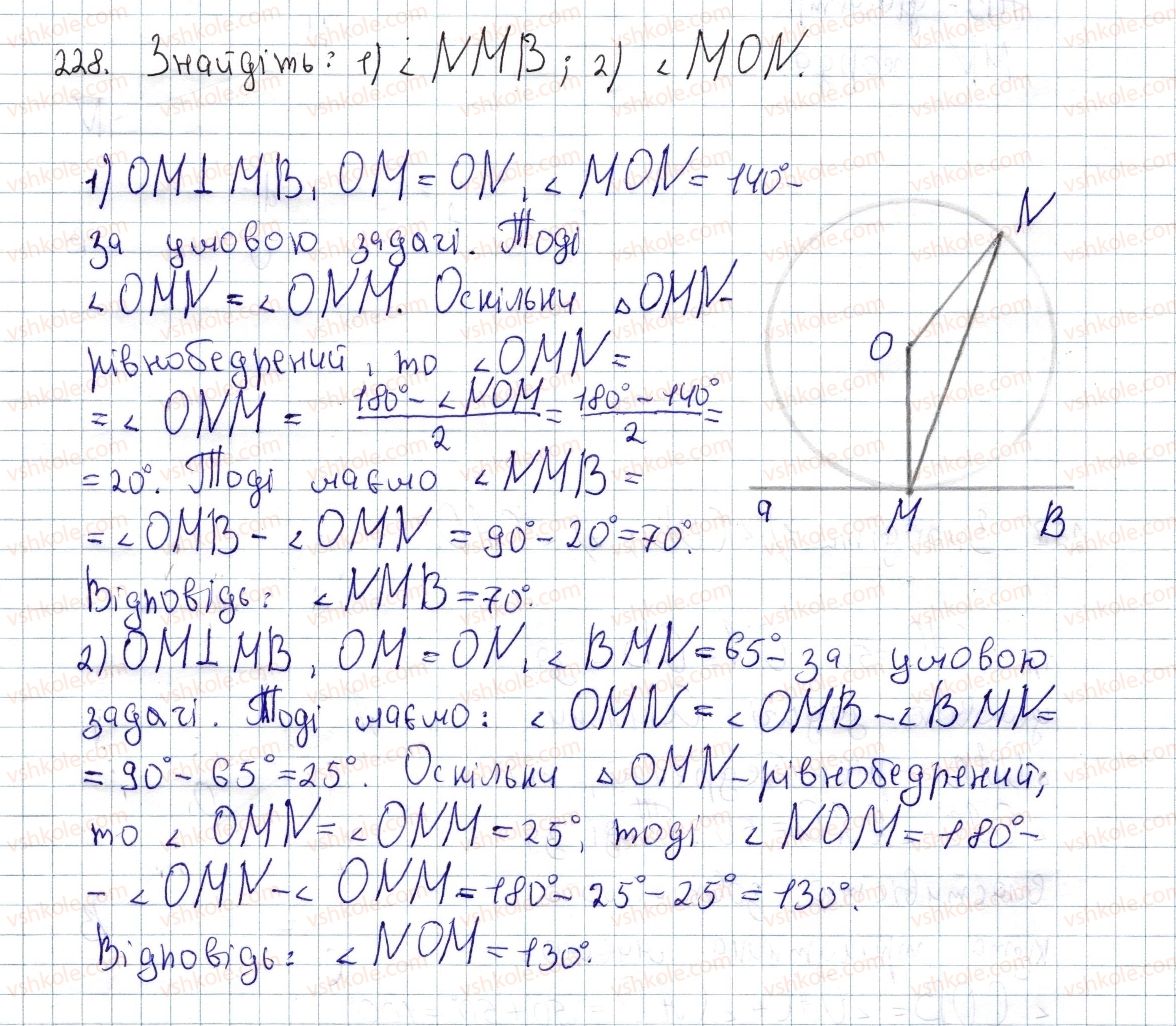 228. Знайдіть: 1) ∠NMB; 2) ∠MON.
1) OM⊥MB, OM = ON, ∠MON = 140° –
за умовою задачі. Тоді
∠OMN = ∠ONM. Оскільки △OMN –
рівнобедрений, то ∠OMN =
= ∠ONM = (180° – ∠NOM)/2 = (180° – 140°)/2 =
= 20°. Тоді маємо ∠NMB =
= ∠OMB – ∠OMN = 90° – 20° = 70°.
Відповідь: ∠NMB = 70°.
N
O
a M B
2) OM⊥MB, OM = ON, ∠BMN = 65° – за умовою
задачі. Тоді маємо: ∠OMN = ∠OMB – ∠BMN =
= 90° – 65° = 25°. Оскільки △OMN – рівнобедрений,
то ∠OMN = ∠ONM = 25°, тоді ∠NOM = 180° –
– ∠OMN – ∠ONM = 180° – 25° – 25° = 130°.
Відповідь: ∠NOM = 130°.